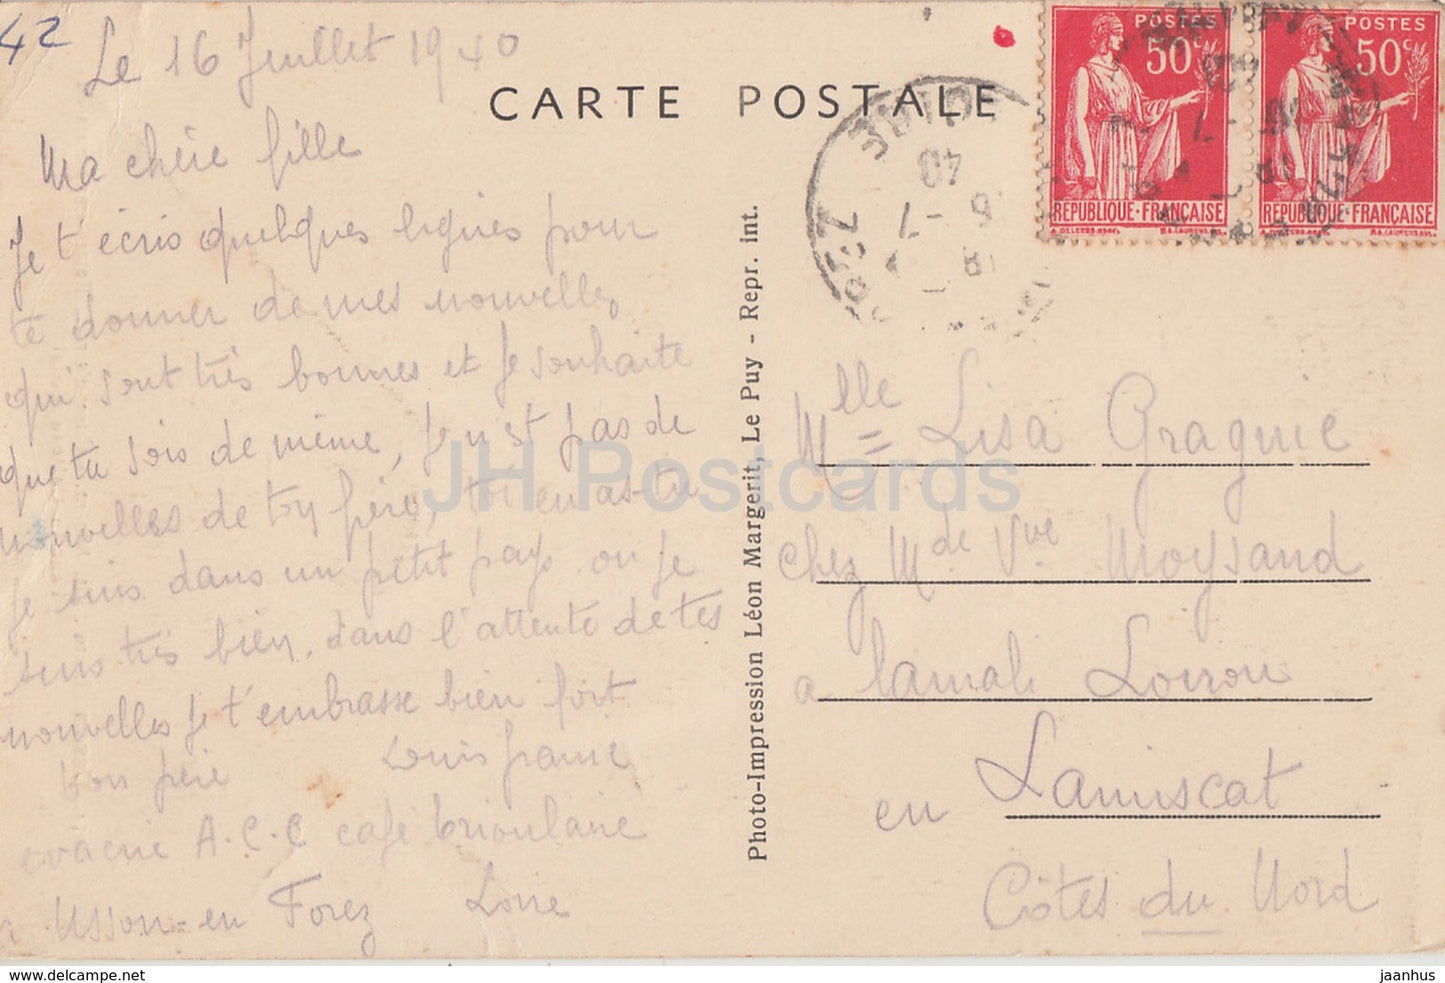 42
Le 16 Juillet 1940
Ma chère fille
Je t'écris quelques lignes pour
te donner de mes nouvelles
qui sont très bonnes et je souhaite
que tu sois de même, Je n'est pas de
nouvelles de ton père, toi en as-tu
Je suis dans un petit pays ou je
suis très bien, dans l'attente de tes
nouvelles je t'embrasse bien fort
ton père Louis
evacué A.C.C café
a Usson-en Forez Loire
CARTE POSTALE
Photo-Impression Léon Margerit, Le Puy - Repr. int.
POSTES
50c
RÉPUBLIQUE·FRANÇAISE
POSTES
50c
RÉPUBLIQUE·FRANÇAISE
LOIRE
40
-7
18
Mlle Lisa Graguie
chez Mde Vve Moysand
a Loiron
en Laniscat
Côtes du Nord
JH Postcards
www.delcampe.net
jaanhus